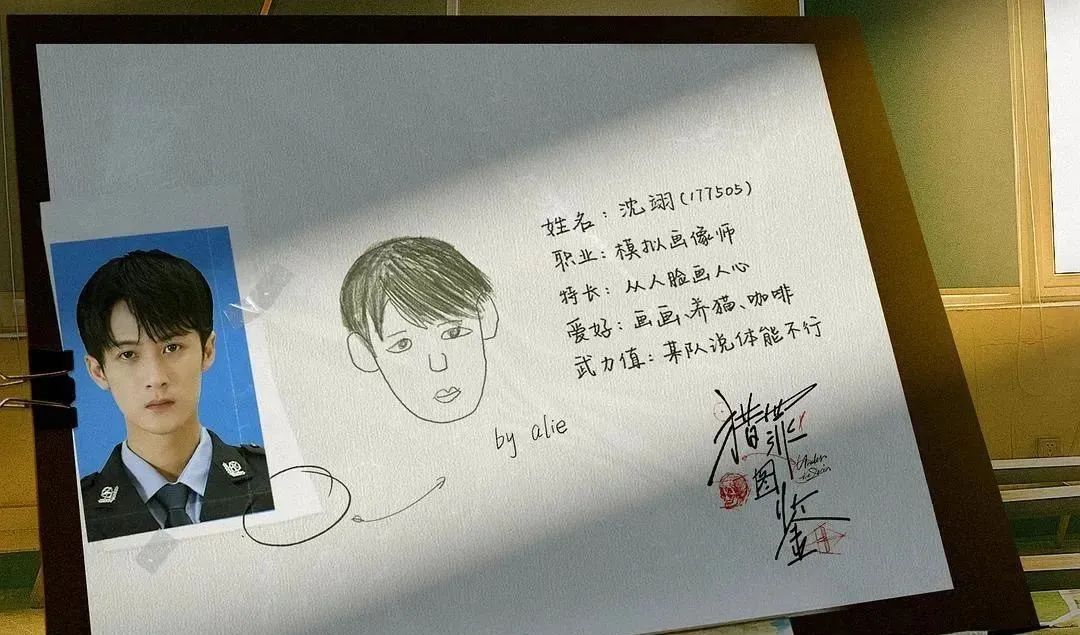 姓名：沈翊(177505)
职业：模拟画像师
特长：从人脸画人心
爱好：画画、养猫、咖啡
武力值：某队说体能不行
by alie
猎罪
图
鉴
Under
the Skin